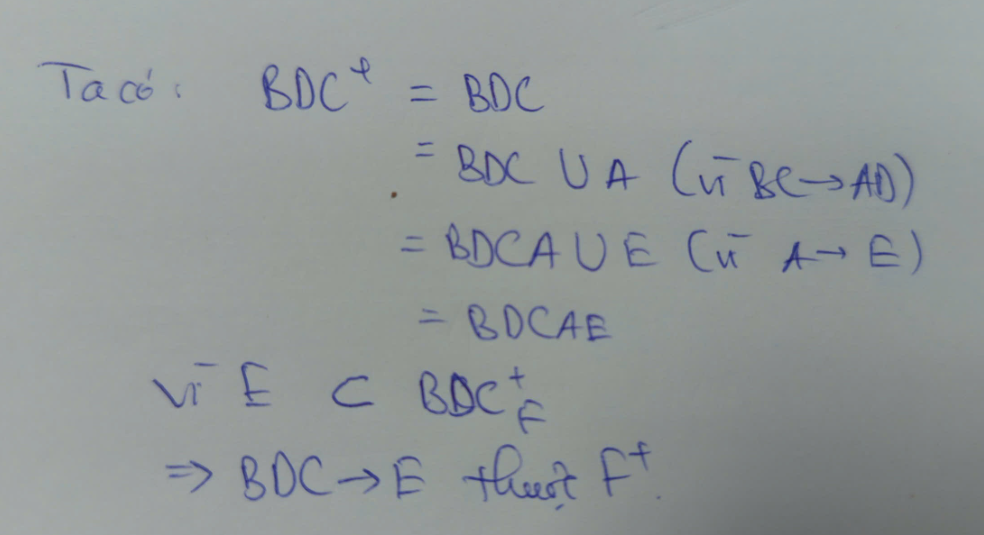 Ta có: BDC⁺ = BDC
= BDC ∪ A (vì BC → AD)
= BDCA ∪ E (vì A → E)
= BDCAE
vì E ⊂ BDC⁺_F
⇒ BDC → E thuộc F⁺.